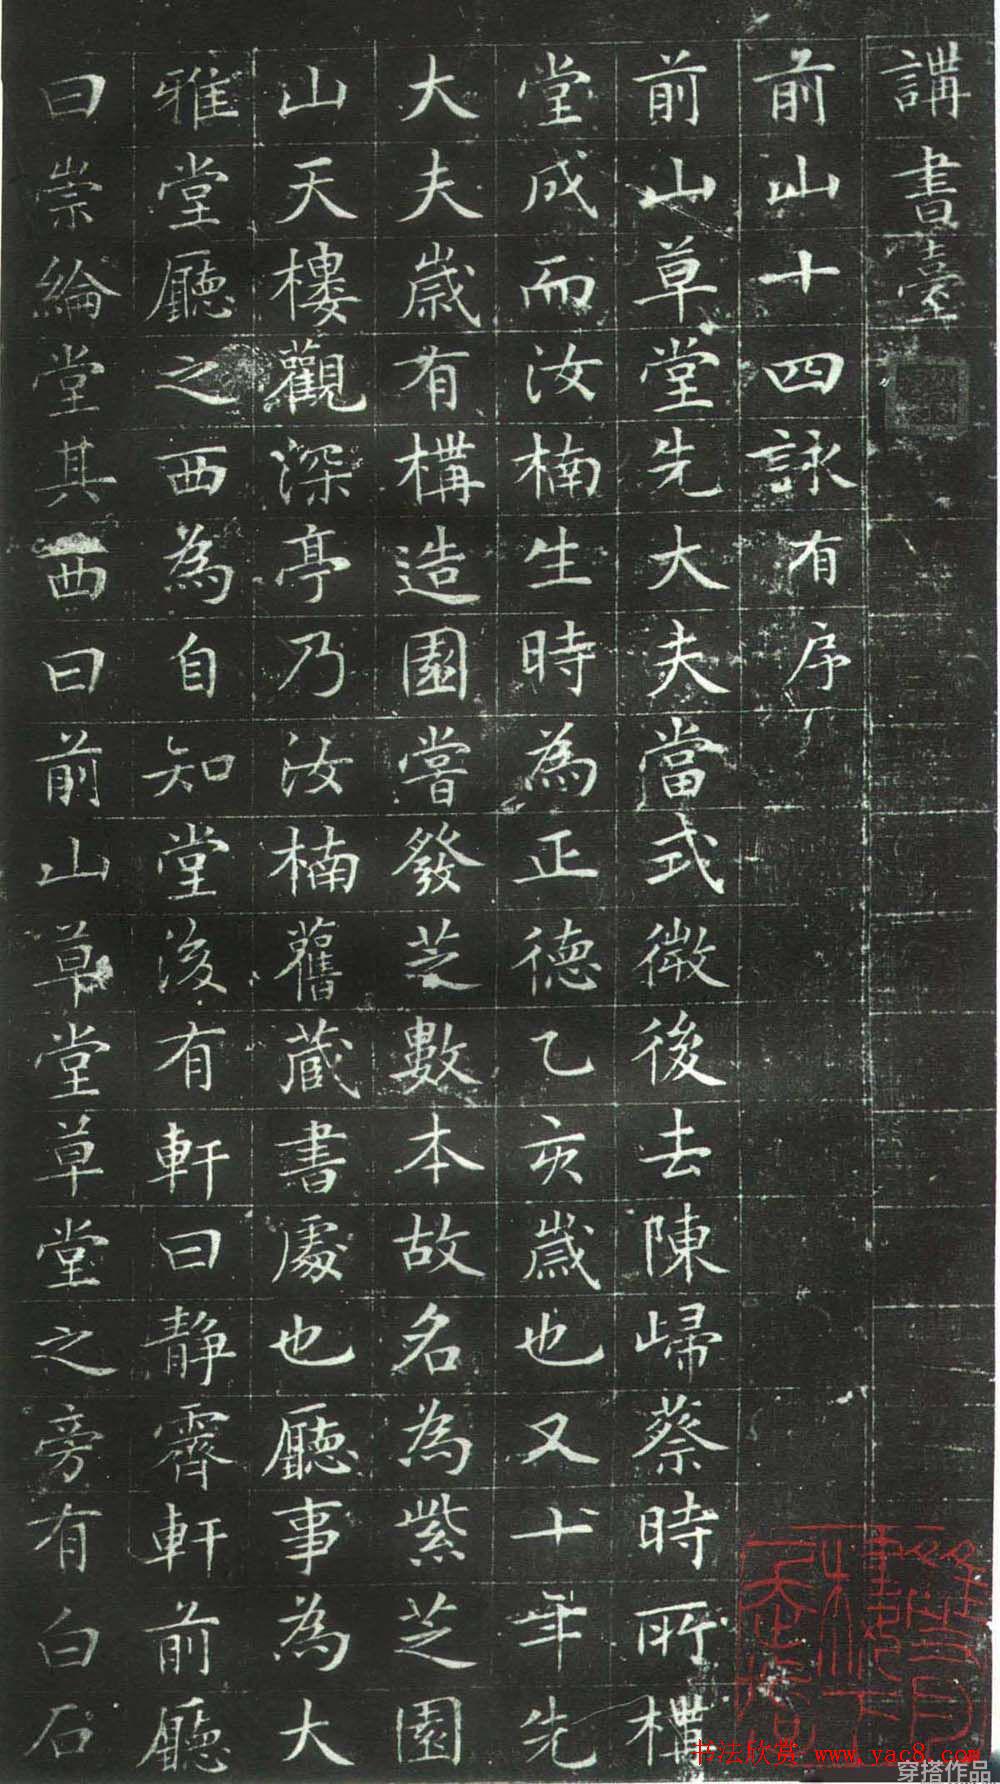 講書臺
前山十四詠有序
前山草堂先大夫當弍微後去陳歸蔡時所構
堂成而汝楠生時為正德乙亥歲也又十年先
大夫歲有構造園嘗發芝數本故名為紫芝園
山天樓觀深亭乃汝楠舊藏書處也廳事為大
雅堂廳之西為自知堂後有軒曰靜霽軒前廳
曰崇綸堂其西曰前山草堂草堂之旁有白石
书法欣赏 www.yac8.com
穿搭作品